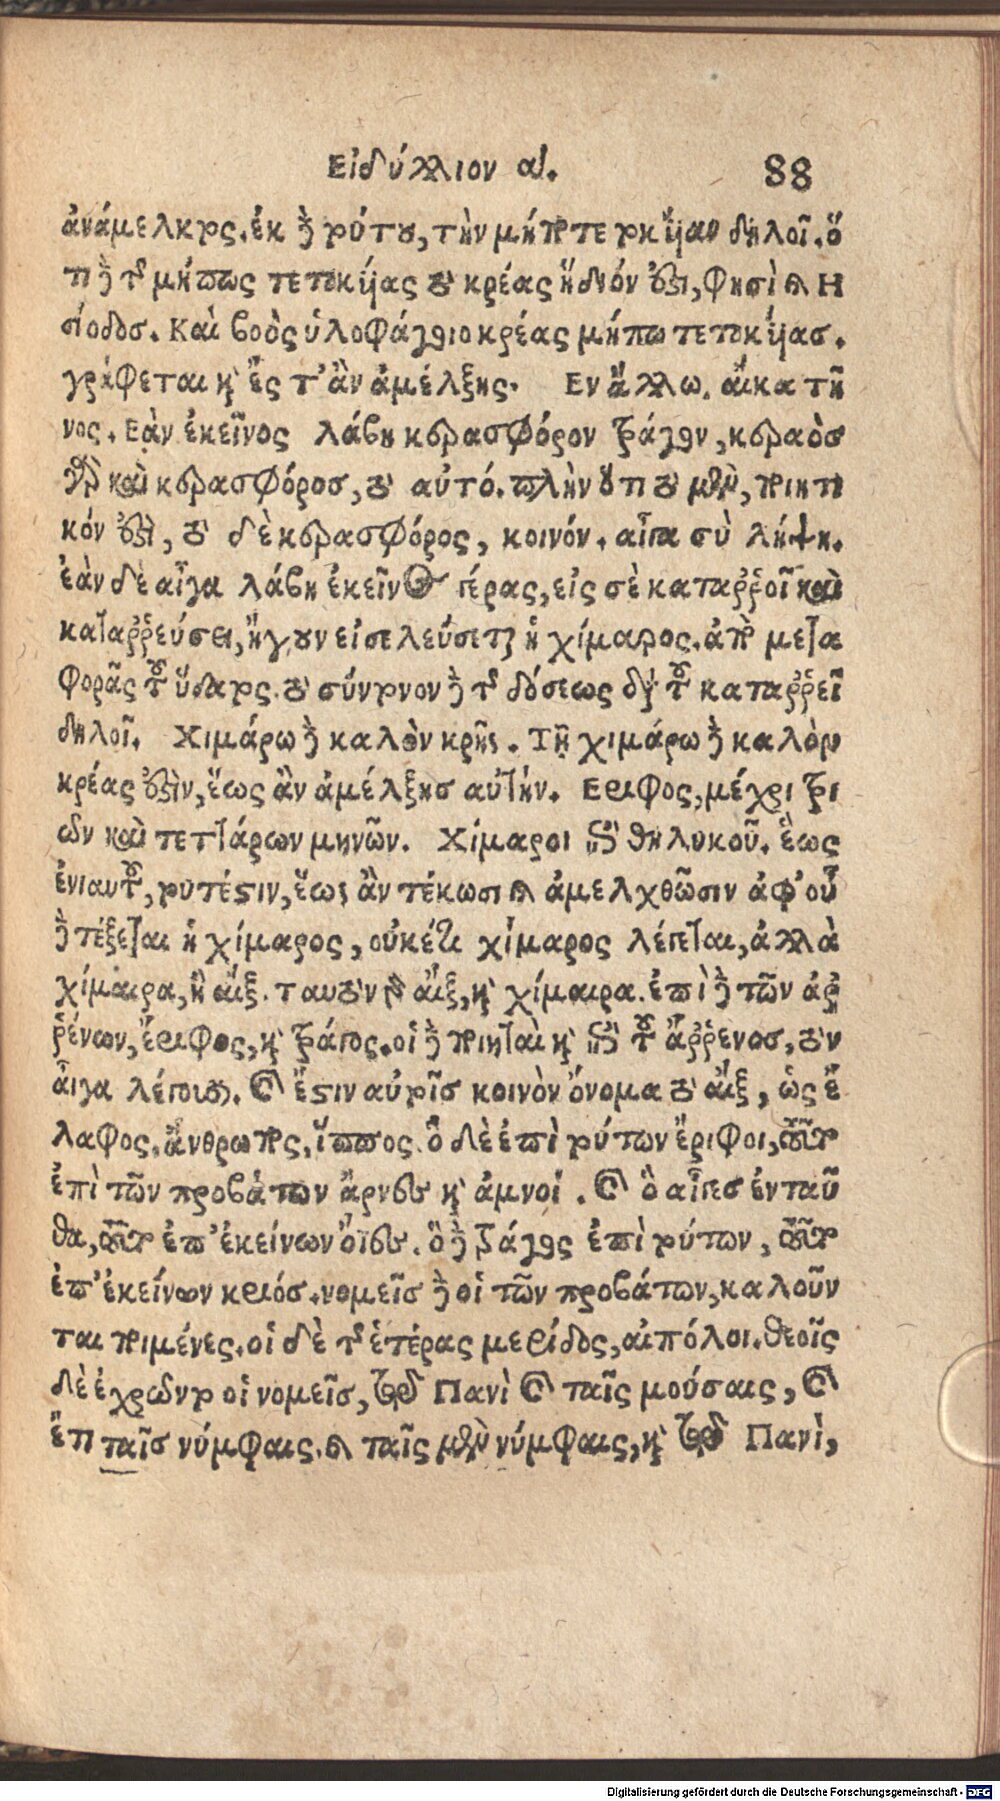 Εἰδύλλιον α. 88
ἀνάμελκτος. ἐκ δὲ τούτου, τὴν μήποτε τοκυῖαν δηλοῖ. ὅ
τι δὲ τῆς μήπως τετοκυίας τὸ κρέας ἥδιόν ἐστι, φησὶ καὶ Η
σίοδοσ. Καὶ βοὸς ὑλοφάγοιο κρέας μήπω τετοκυίασ.
γράφεται καὶ ἔς τ' ἂν ἀμέλξῃς. Εν ἄλλω. αἴκα τῆ
νος. Εὰν ἐκεῖνος λάβῃ κερασφόρον τράγον, κεραὸσ
γὰρ καὶ κερασφόροσ, τὸ αὐτό. πλὴν ὅτι τὸ μὲν, ποιητι
κόν ἐστι, τὸ δὲ κερασφόρος, κοινόν. αἶγα σὺ λήψῃ.
ἐὰν δὲ αἶγα λάβῃ ἐκεῖνος γέρας, εἰς σὲ καταῤῥοῖ καὶ
καταῤῥεύσει, ἤγουν εἰσελεύσεται ἡ χίμαρος. ἀπὸ μετα
φορᾶς τοῦ ὕδατος. τὸ σύντονον δὲ τῆς δόσεως διὰ τοῦ καταῤῥεῖ
δηλοῖ. Χιμάρω δὲ καλὸν κρῆς. Τῇ χιμάρω δὲ καλὸν
κρέας ἐστὶν, ἕως ἂν ἀμέλξῃσ αὐτήν. Εριφος, μέχρι τρι
ῶν καὶ τεττάρων μηνῶν. Χίμαροι ἐπὶ θηλυκοῦ. ἕως
ἐνιαυτοῦ, τουτέστιν, ἕως ἂν τέκωσι καὶ ἀμελχθῶσιν ἀφ' οὗ
δὲ τέξεται ἡ χίμαρος, οὐκέτι χίμαρος λέγεται, ἀλλὰ
χίμαιρα, ἢ αἴξ. ταυτὸν γὰρ αἲξ, καὶ χίμαιρα. ἐπὶ δὲ τῶν ἀῤ
ῥένων, ἔριφος, καὶ τράγος. οἱ δὲ ποιηταὶ καὶ ἐπὶ τοῦ ἄῤῥενοσ, τὸν
αἶγα λέγουσι. καὶ ἔστιν αὐτοῖσ κοινὸν ὄνομα τὸ αἲξ, ὡς ἔ
λαφος, ἄνθρωπος, ἵππος. ὃ δὲ ἐπὶ τούτων ἔριφοι, τοῦτο
ἐπὶ τῶν προβάτων ἄρνες καὶ ἀμνοί. καὶ ὃ αἶγεσ ἐνταῦ
θα, τοῦτο ἐπ' ἐκείνων ὄϊες. ὃ δὲ τράγος ἐπὶ τούτων, τοῦτο
ἐπ' ἐκείνων κριόσ. νομεῖσ δὲ οἱ τῶν προβάτων, καλοῦν
ται ποιμένες. οἱ δὲ τῆς ἑτέρας μερίδος, αἰπόλοι. θεοῖς
δὲ ἐχρῶντο οἱ νομεῖσ, τῷ Πανὶ καὶ ταῖς μούσαις, καὶ
ἔτι ταῖσ νύμφαις. καὶ ταῖς μὲν νύμφαις, καὶ τῷ Πανὶ,
Digitalisierung gefördert durch die Deutsche Forschungsgemeinschaft - DFG